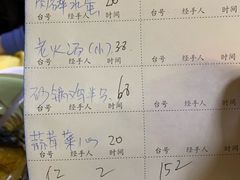 台号 经手人 时间 台号 经手人 时间
老火汤(小) 38
台号 经手人 时间 台号 经手人 时间
砂锅鸡半只 68
台号 经手人 时间 台号 经手人 时间
蒜茸菜心 20
台号 经手人 时间 台号 经手人 时间
62 2 152